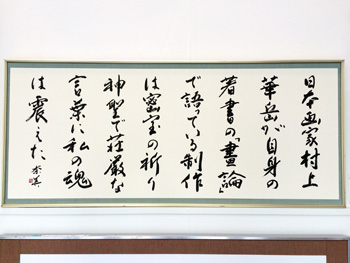 日本画家村上
華岳が自身の
著書の「畫論」
で語っている制作
は密室の祈り
神聖で荘厳な
言葉に私の魂
は震えた